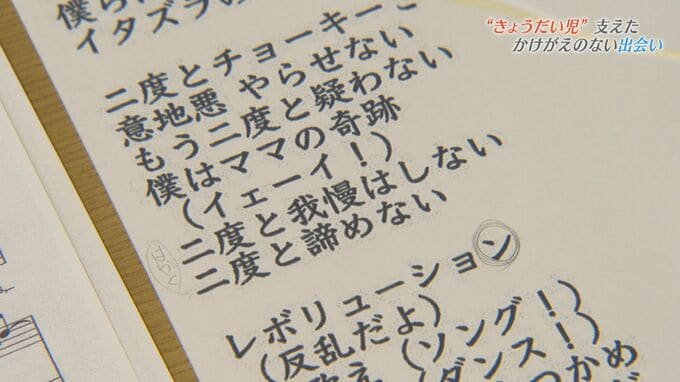 “きょうだい児” 支えた
かけがえのない出会い
僕ら
イタズラの
二度とチョーキー
意地悪 やらせない
もう二度と疑わない
僕はママの奇跡
(イェーイ!)
二度と我慢はしない
二度と諦めない
はやく
レボリューション
(反乱だよ)
(ソング!)
(ダンス!)
つかめ